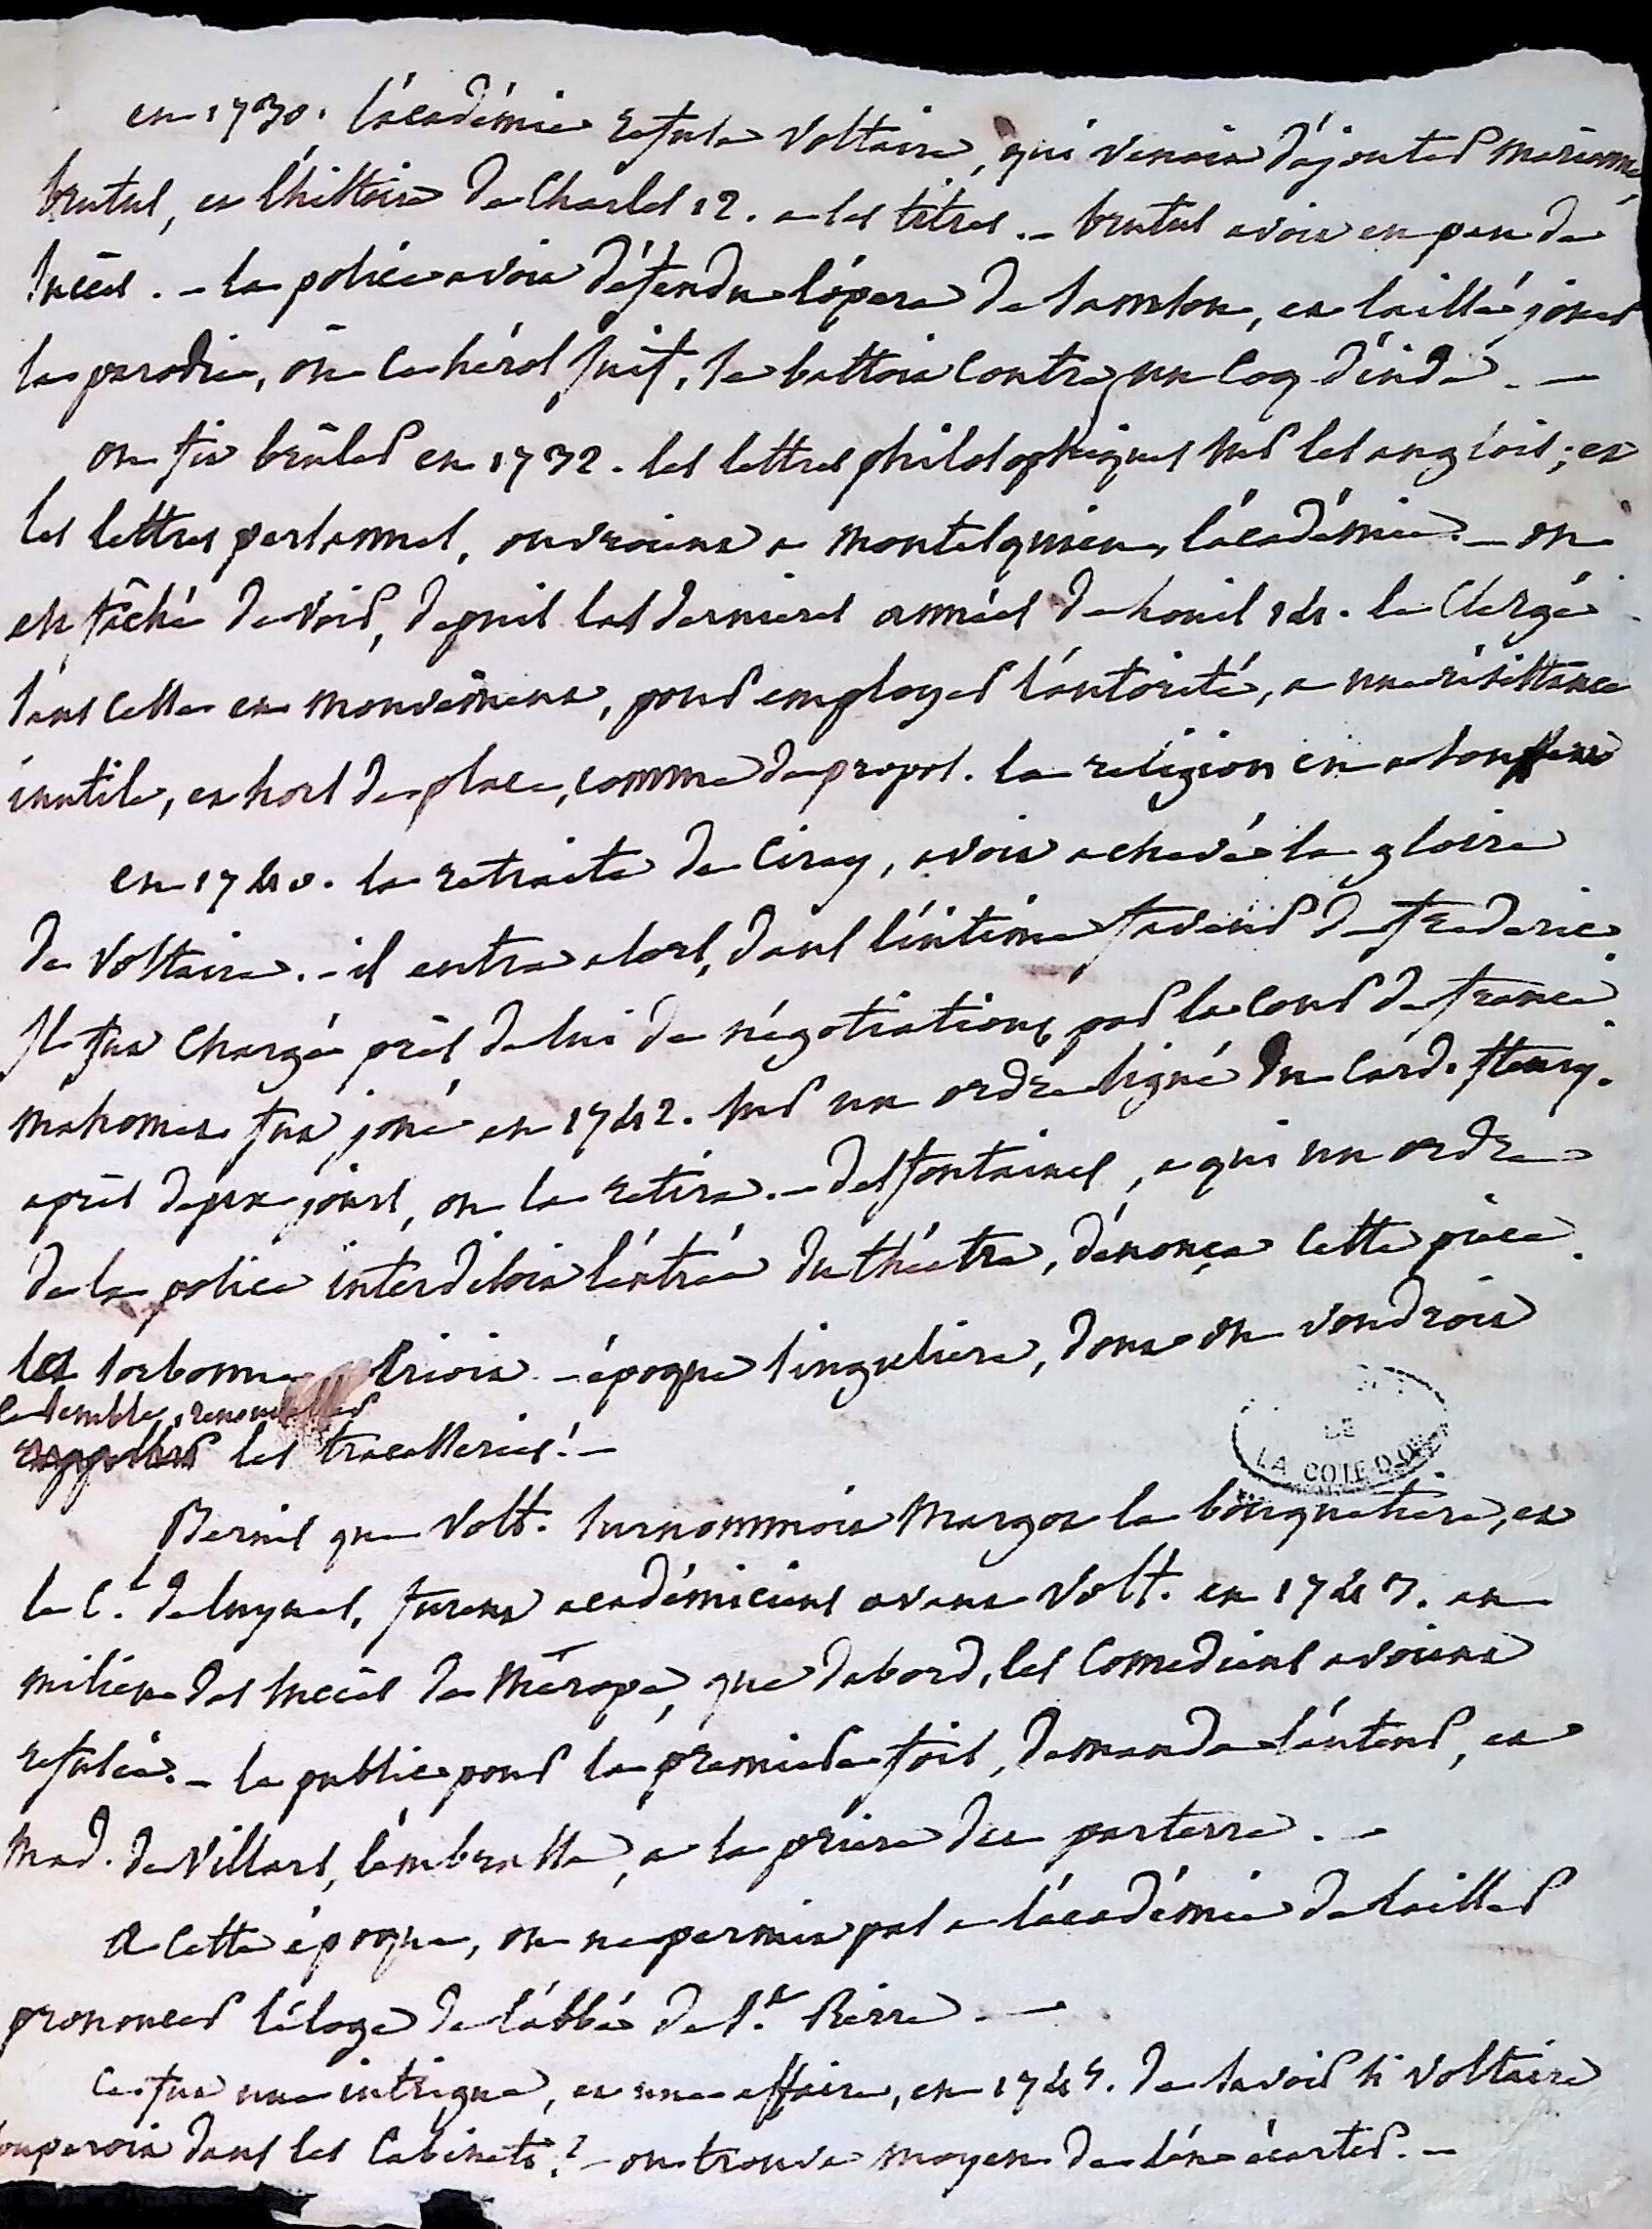 en 1730. l'académie refusa Voltaire, qui venoit d'ajouter mariamne
brutus, et l'histoire de Charles 12. a ses titres. - brutus avoit eu peu de
succès. - la police avoit déffendu l'opera de samson, et laissé jouer
la parodie, où ce héros juif, se battoit contre un coq d'inde. -
on fit brûler en 1732. les lettres philosophiques sur les anglois; et
les lettres persannes, ouvroient a montesquieu, l'académie. - on
est fâché de voir, depuis les dernieres années de Louis 14. le Clergé
sans cesse en mouvement, pour employer l'autorité, a une résistance
inutile, et hors de place, comme de propos. la religion en a souffert
en 1740. la retraite de Cirey, avoit achevé la gloire
de Voltaire. - il entra alors, dans l'intime faveur de frederic.
Il fut chargé près de lui de négotiations par la Cour de france.
mahomet fut joué en 1742. sur un ordre signé du Card. fleury.
après deux jours, on le retira. - desfontaines, a qui un ordre
de la police interdisoit l'entrée du théatre, dénonça cette piece.
les sorbonne crioit - époque singuliere, dont on voudroit
ce semble, renouveller
rappeller les tracasseries! -
DE
LA COTE D'OR
Bernis que Volt. surnommoit Margot la bouquetiere, et
le C.l de luynes, furent académiciens avant Volt. en 1743. au
milieu des succès de Mérope, que d'abord, les Comediens avoient
refusée. - le public pour la premiere fois, demanda l'auteur, et
mad. de Villars, l'embrassa, a la priere du parterre. -
A cette époque, on ne permit pas a l'académie de laisser
prononcer l'éloge de l'abbé de St. Pierre. -
Ce fut une intrigue, et une affaire, en 1745. de savoir si Voltaire
souperoit dans les Cabinets? - on trouva moyen de l'en écarter. -